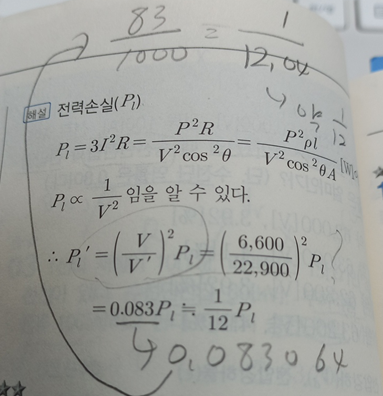 83/1000 = 1/12,04
↳ 약 1/12
해설 전력손실(P_l)
P_l = 3I²R = P²R/(V²cos²θ) = P²ρl/(V²cos²θA) [W]
P_l ∝ 1/V² 임을 알 수 있다.
∴ P_l′ = (V/V′)² P_l = (6,600/22,900)² P_l
= 0.083P_l ≒ 1/12 P_l
↳ 0,083064